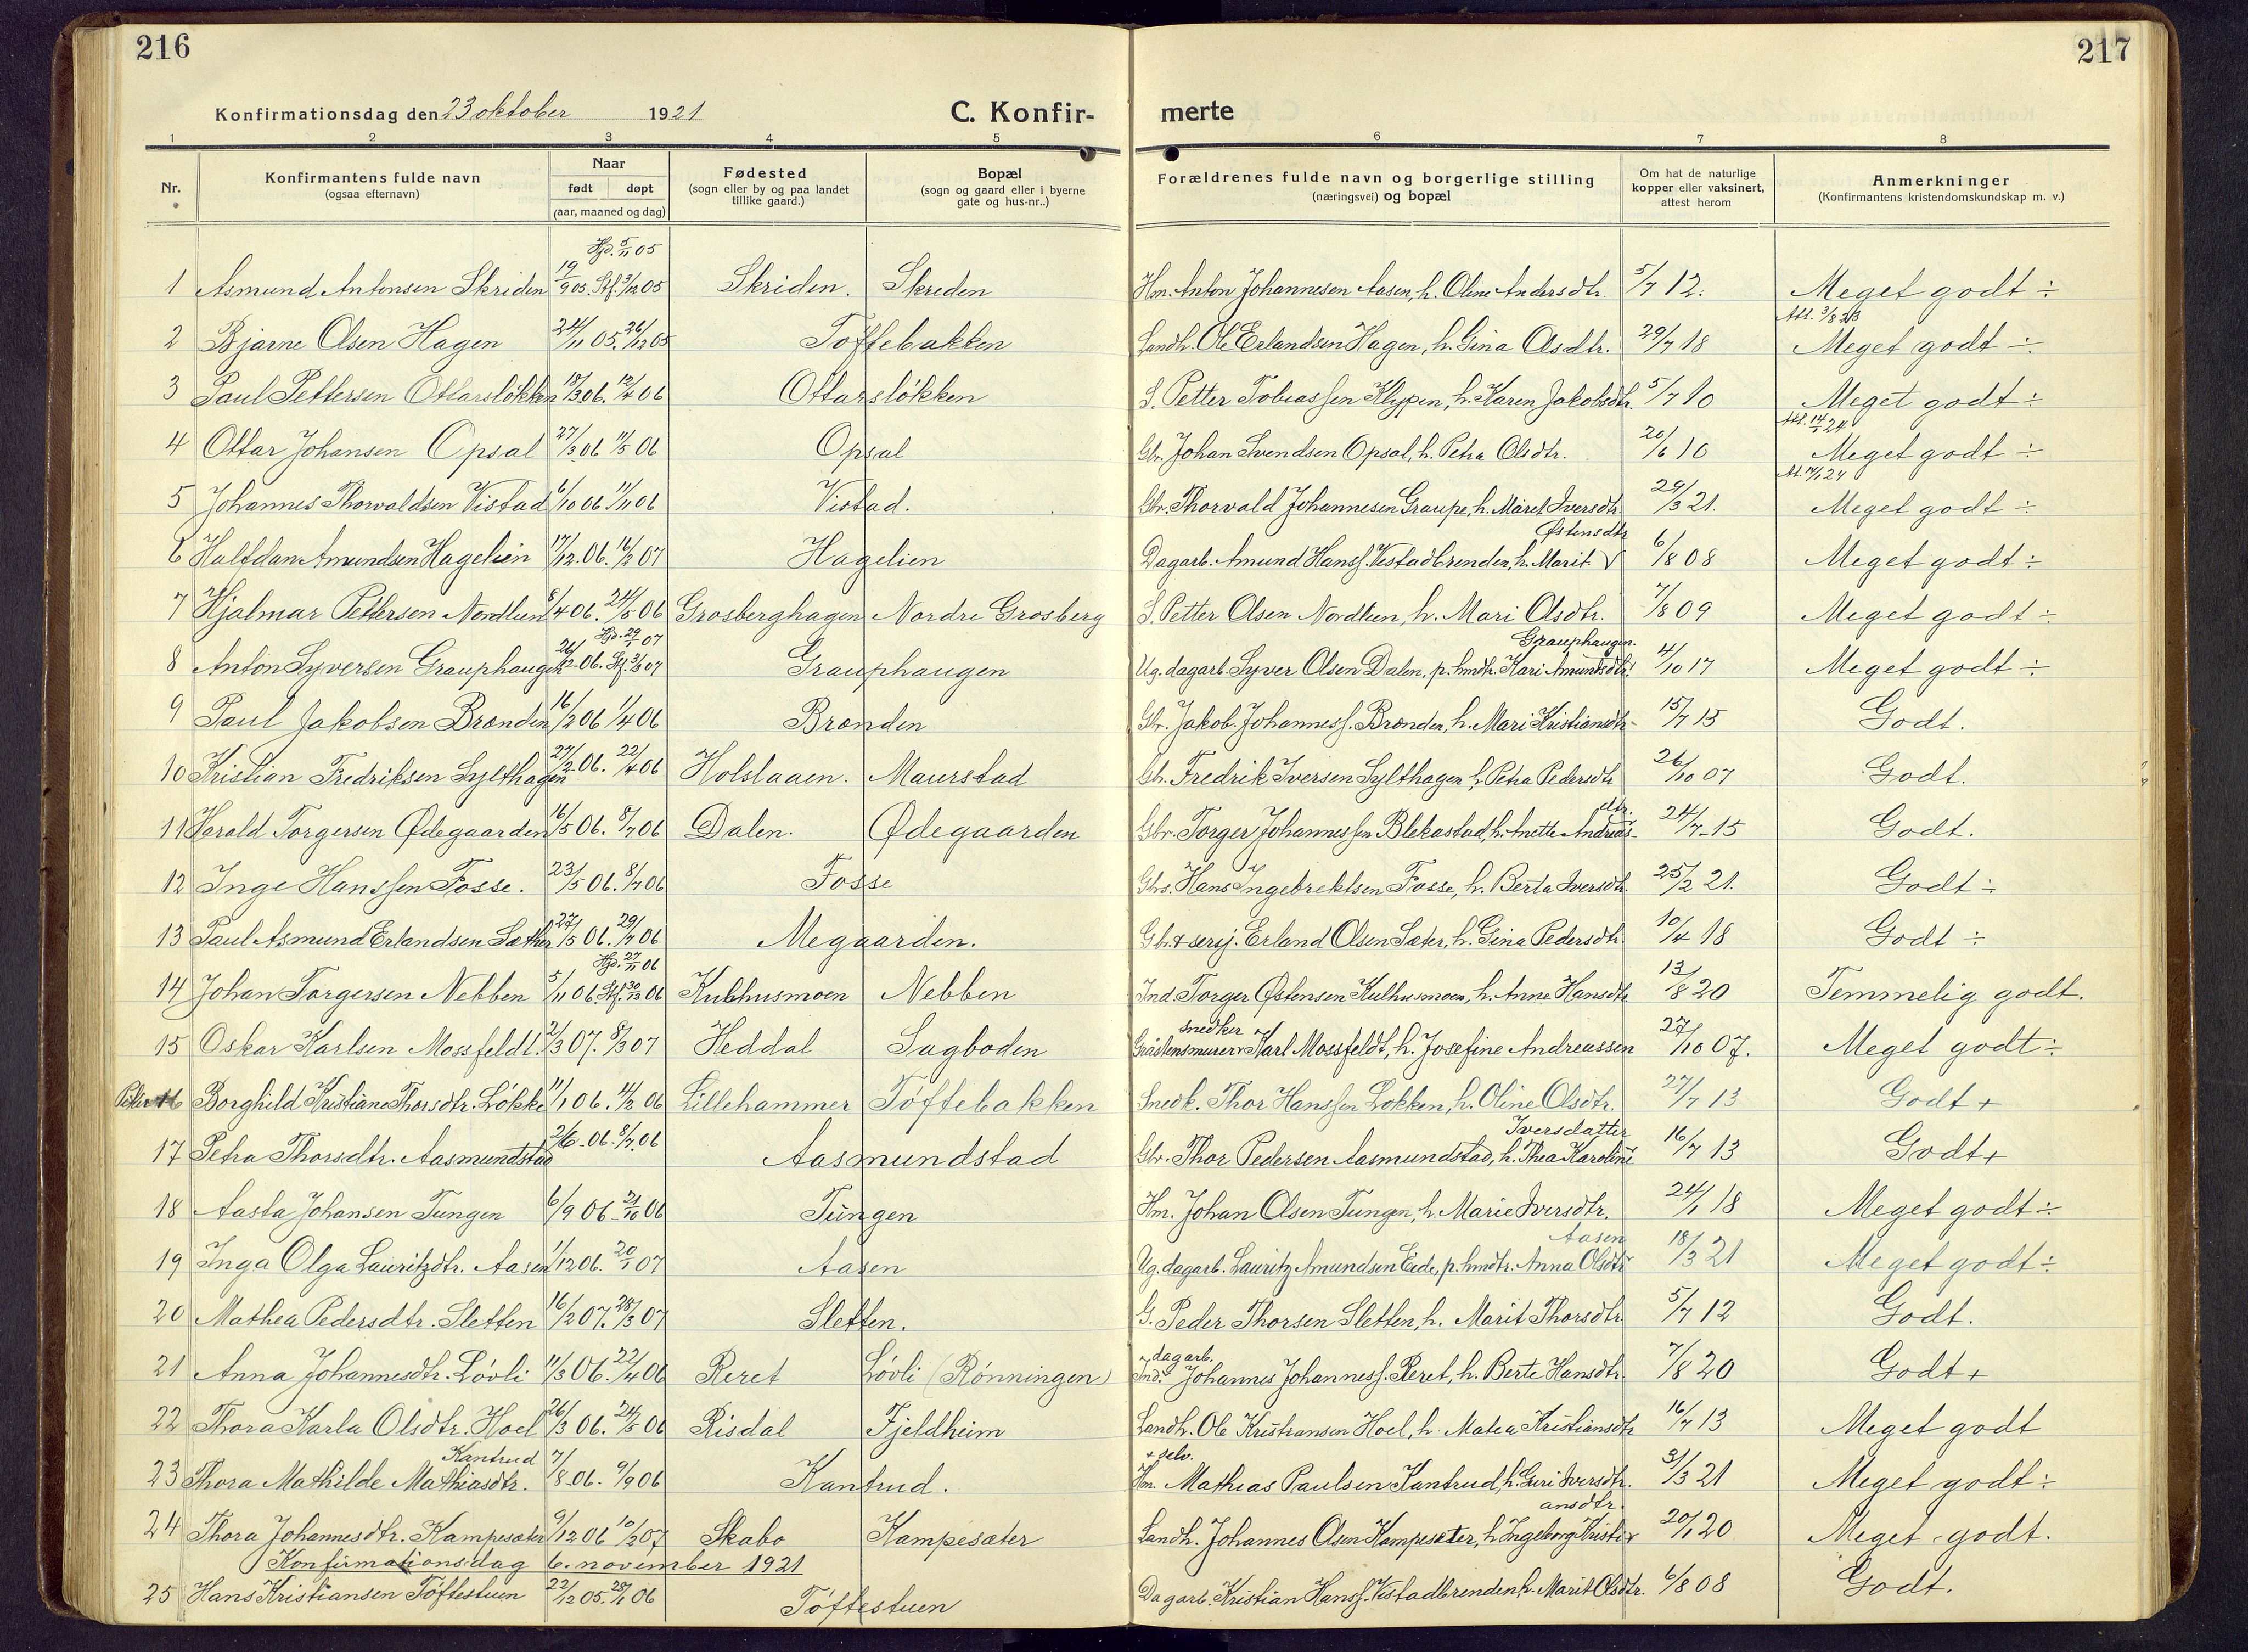 216
217
Konfirmationsdag den 23 oktober 1921
C. Konfir-
merte
1 2 3 4 5 6 7 8
Nr.
Konfirmantens fulde navn
(ogsaa efternavn)
Naar
født døpt
(aar, maaned og dag)
Fødested
(sogn eller by og paa landet
tillike gaard.)
Bopæl
(sogn og gaard eller i byerne
gate og hus-nr..)
Forældrenes fulde navn og borgerlige stilling
(næringsvei) og bopæl
Om hat de naturlige
kopper eller vaksinert,
attest herom
Anmerkninger
(Konfirmantens kristendomskundskap m. v.)
Hjd. 5/11 05
1 Asmund Antonsen Skriden 19/9 05. Stf. 3/12 05 Skriden. Skreden Hm. Anton Johannesen Aasen, h. Oline Andersdtr. 5/7 12. Meget godt ÷
Att. 3/8 23
2 Bjarne Olsen Hagen 24/11 05. 26/12 05 Toftebakken Landh. Ole Erlandsen Hagen, h. Gina Olsdtr. 29/7 18 Meget godt ÷
3 Paul Pettersen Ottarsløkken 18/3 06. 12/4 06 Ottarsløkken S. Petter Tobiassen Klypen, h. Karen Jakobsdtr. 5/7 10 Meget godt ÷
4 Ottar Johansen Opsal 27/3 06 11/5 06 Opsal Gbr. Johan Svendsen Opsal, h. Petra Olsdtr. 20/6 10 Meget godt ÷
5 Johannes Thorvaldsen Vistad 6/10 06 11/11 06 Vistad. Gbr. Thorvald Johannesen Graupe, h. Marit Iversdtr. 29/3 21. Meget godt ÷
Østensdtr
6 Halfdan Amundsen Hagelien 17/12. 06. 16/2 07 Hagelien Dagarb. Amund Hanss. Vestadbrenden, h. Marit V 6/8 08 Meget godt ÷
7 Hjalmar Pettersen Nordlien 8/4 06. 24/5 06 Grosberghagen Nordre Grosberg S. Petter Olsen Nordlien, h. Mari Olsdtr. 7/8 09 Meget godt ÷
Hjd. 29/1 07 Grauphaugen.
8 Anton Syversen Grauphaugen 26/12 06. Stf. 3/3 07 Grauphaugen Ug. dagarb. Syver Olsen Dalen, p. hmdtr. Kari Amundsdtr. 4/10 17 Meget godt ÷
9 Paul Jakobsen Brenden 16/2 06 1/4 06 Brenden Gbr. Jakob Johanness. Brenden, h. Mari Kristiansdtr. 15/7 15 Godt.
10 Kristian Fredriksen Sylthagen 27/2 06. 22/4 06 Holslaaen. Maurstad Gbr. Fredrik Iversen Sylthagen h. Petra Pedersdtr 26/10 07 Godt.
dtr.
11 Harald Torgersen Ødegaarden 16/5 06. 8/7 06 Dalen. Ødegaarden Gbr. Torger Johannessen Blekastad, h. Anette Andreas- 24/7 15 Godt.
12 Inge Hanssen Fosse. 23/5 06. 8/7 06 Fosse Gbs. Hans Ingebrektsen Fosse, h. Berta Iversdtr. 25/2 21. Godt ÷
13 Paul Asmund Erlandsen Sæther 27/5 06. 29/7 06 Megaarden. Gbr. & sersj. Erland Olsen Sæter, h. Gina Pedersdtr 10/4 18 Godt ÷
Hjd. 27/11 06
14 Johan Torgersen Nebben 5/11 06 Stf. 30/12 06 Kulhusmoen Nebben Ind. Torger Østensen Kulhusmoen, h. Anne Hansdtr 13/8 20 Temmelig godt.
snedker
15 Oskar Karlsen Mossfeldt. 2/3 07. 8/3 07 Heddal Sagboden Gråstensmurer Karl Mossfeldt, h. Josefine Andreassen 27/10 07. Meget godt ÷
Piker 16 Borghild Kristiane Thorsdtr. Løkke 11/1 06. 4/2 06 Lillehammer Toftebakken Snedk. Thor Hanssen Løkken, h. Oline Olsdtr. 27/7 13 Godt +
Iversdatter
17 Petra Thorsdtr. Aasmundstad 2/6 06. 8/7 06 Aasmundstad Gbr. Thor Pedersen Aasmundstad, h. Thea Karoline 16/7 13 Godt +
18 Aasta Johansen Tungen 6/9 06 21/10 06 Tungen Hm. Johan Olsen Tungen, h. Marie Iversdtr. 24/1 18 Meget godt ÷
Aasen
19 Inga Olga Lauritzdtr. Aasen 1/12 06. 20/1 07 Aasen Ug. dagarb. Lauritz Amundsen Eide, p. hmdtr. Anna Olsdtr 18/3 21 Meget godt ÷
20 Mathea Pedersdtr. Sletten 16/2 07. 28/3 07 Sletten. G. Peder Thorsen Sletten, h. Marit Thorsdtr. 5/7 12 Godt.
dagarb.
21 Anna Johannesdtr. Løvli 11/3 06. 22/4 06 Reret Løvli (Rønningen) Ind. Johannes Johanness. Reret, h. Berte Hansdtr. 7/8 20 Godt +
22 Thora Karla Olsdtr. Hoel 26/3 06. 24/5 06 Risdal Fjeldheim Landh. Ole Kristiansen Hoel, h. Matea Kristiansdtr 16/7 13 Meget godt
Kantrud + selv.
23 Thora Mathilde Mathiasdtr. 7/8 06. 9/9 06 Kantrud. Hm. Mathias Paulsen Kantrud, h. Guri Iversdtr. 31/3 21 Meget godt ÷
ansdtr.
24 Thora Johannesdtr. Kampesæter 9/12 06 10/2 07 Skabo Kampesæter Landh. Johannes Olsen Kampesæter, h. Ingeborg Kristi- 20/1 20 Meget godt.
Konfirmationsdag 6. november 1921
25 Hans Kristiansen Toftestuen 22/12 05. 28/1 06 Toftestuen Dagarb. Kristian Hanss. Vistadbrenden, h. Marit Olsdtr. 6/8 08 Godt.